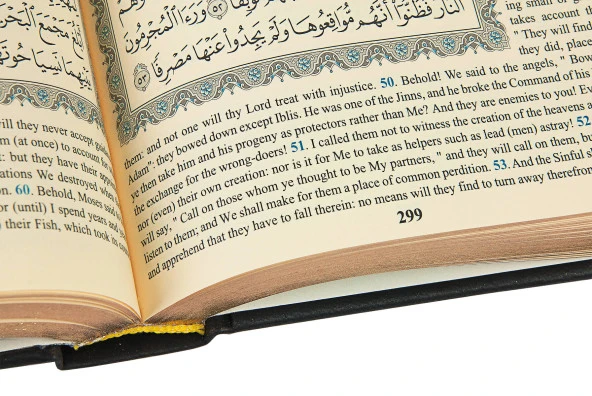 النار فظنوا أنهم مواقعوها ولم يجدوا عنها مصرفا ٥٣
will they never accept
m (at once) to account for
: but they have their app
ations We destroyed when
n. 60. Behold, Moses said
or (until) I spend years and
) their Fish, which took its co
them: and not one will thy Lord treat with injustice. 50. Behold! We said to the angels, " Bow
Adam": they bowed down except Iblis. He was one of the Jinns, and he broke the Command of his
ye then take him and his progeny as protectors rather than Me? And they are enemies to you! Ev
the exchange for the wrong-doers! 51. I called them not to witness the creation of the heavens a
nor (even) their own creation: nor is it for Me to take as helpers such as lead (men) astray! 52
will say, " Call on those whom ye thought to be My partners, " and they will call on them, bu
listen to them; and We shall make for them a place of common perdition. 53. And the Sinful s
and apprehend that they have to fall therein: no means will they find to turn away therefrom
299
ing small or g
takes account th
" They will find
they did, place